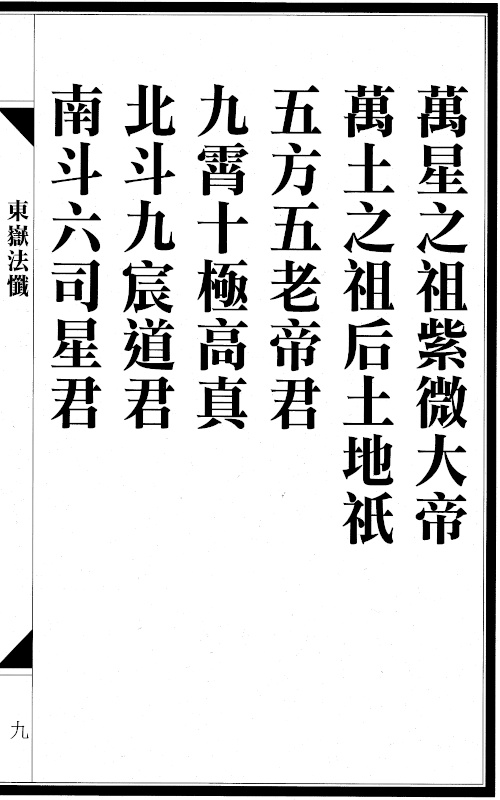 萬星之祖紫微大帝
萬土之祖后土地祇
五方五老帝君
九霄十極高真
北斗九宸道君
南斗六司星君
東嶽法懺
九